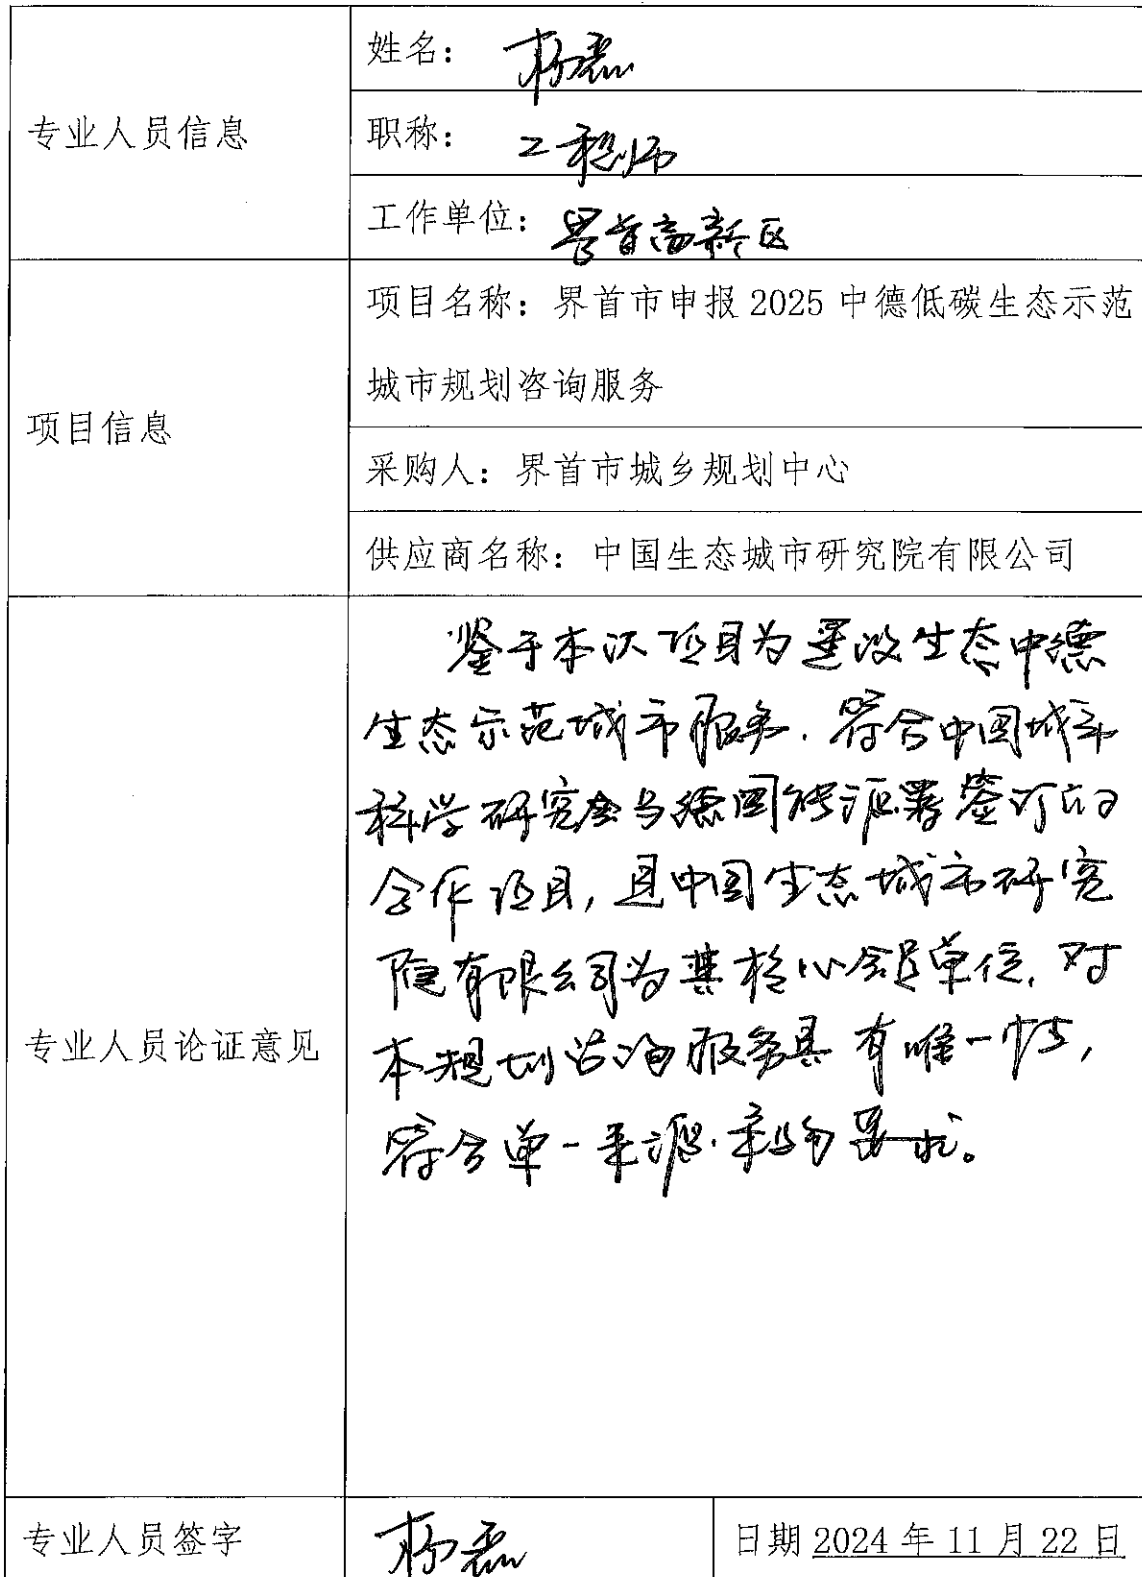 专业人员信息
姓名：杨磊
职称：工程师
工作单位：界首高新区
项目信息
项目名称：界首市申报 2025 中德低碳生态示范
城市规划咨询服务
采购人：界首市城乡规划中心
供应商名称：中国生态城市研究院有限公司
专业人员论证意见
鉴于本次项目为建设生态中德
生态示范城市服务，符合中国城市
科学研究会与德国能源署签订的
合作项目，且中国生态城市研究
院有限公司为其核心会员单位，对
本规划咨询服务具有唯一性，
符合单一来源采购要求。
专业人员签字
杨磊
日期 2024 年 11 月 22 日